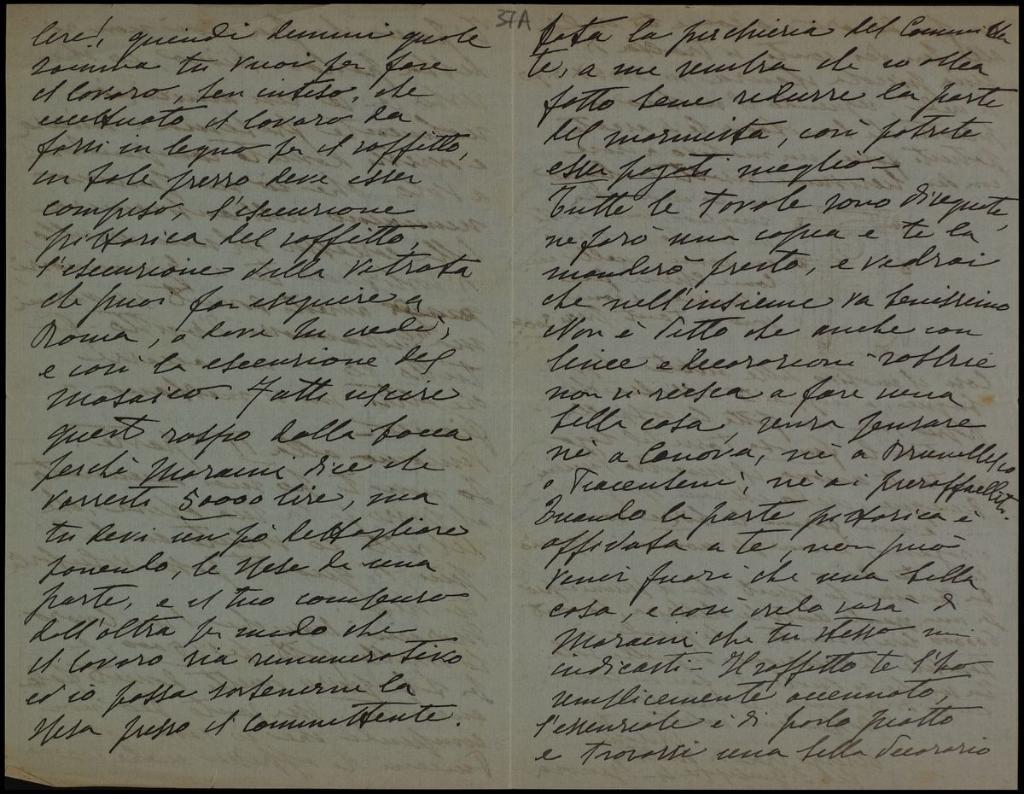 37A
lere!, quindi dimmi quale
somma tu vuoi per fare
il lavoro, ben inteso, che
eccettuato il lavoro da
farsi in legno per il soffitto,
in tale prezzo deve esser
compreso, l'esecuzione
pittorica del soffitto,
l'esecuzione della vetrata
che puoi far eseguire a
Roma, o dove tu credi,
e così la esecuzione del
mosaico. Fatti uscire
quest rospo dalla bocca
perchè Maraini dice che
vorresti 50000 lire, ma
tu devi un pò dettagliare
ponendo, le spese da una
parte, e il tuo compenso
dall'altra per modo che
il lavoro sia remunerativo
ed io possa sostenerne la
spesa presso il committente.
tata la pirchieria del Committen
te, a me sembra che io abbia
fatto bene ridurre la parte
del marmista, così potrete
esser pagati meglio
Tutte le tavole sono disegnate,
ne farò una copia e te la
manderò presto, e vedrai
che nell'insieme va benissimo
Non è detto che anche con
linee e decorazioni sobrie
non si riesca a fare una
bella cosa, senza pensare
nè a Canova, nè a Brunellesco
o Piacentini, nè ai preraffaelliti.
Quando la parte pittorica è
affidata a te, non può
venir fuori che una bella
cosa, e così credo sarà di
Maraini che tu stesso mi
indicasti - Il soffitto te l'ho
semplicemente accennato,
l'essenziale è di farlo piatto
e trovarsi una bella decorazio